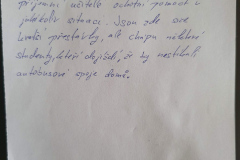 příjemní učitelé ochotní pomoct v
jakékoliv situaci. Jsou zde sice
kratší přestávky, ale chápu některé
studenty, kteří dojíždí, že by nestíhali
autobusové spoje domů.